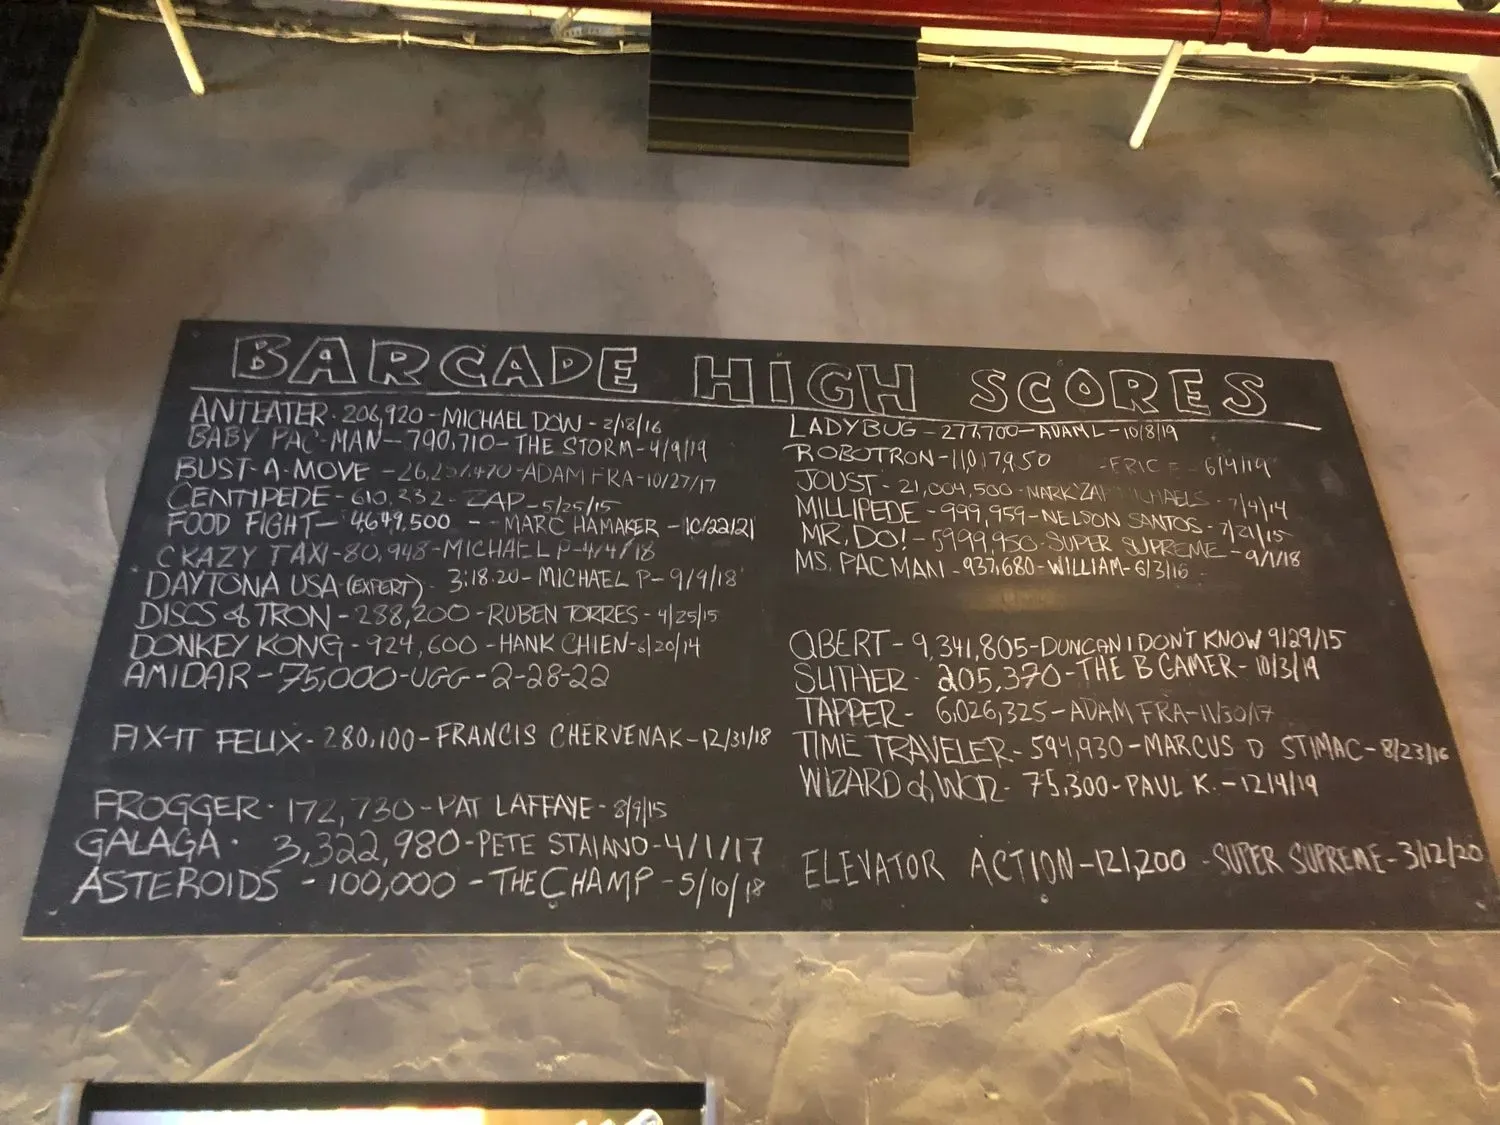 BARCADE HIGH SCORES
ANTEATER - 206,920 - MICHAEL DOW - 2/13/16
BABY PAC-MAN - 790,710 - THE STORM - 4/9/19
BUST-A-MOVE - ADAM FRA - 10/27/17
CENTIPEDE - 610,332 - ZAP - 5/25/15
FOOD FIGHT - 4649,500 - MARC HAMAKER - 10/22/21
CRAZY TAXI - 80,948 - MICHAEL P - 4/4/18
DAYTONA USA (EXPERT) - 3:18.20 - MICHAEL P - 9/9/18
DISCS of TRON - 288,200 - RUBEN TORRES - 4/25/15
DONKEY KONG - 924,600 - HANK CHIEN - 6/20/14
AMIDAR - 75,000 - UGG - 2-28-22
FIX-IT FELIX - 280,100 - FRANCIS CHERVENAK - 12/31/18
FROGGER - 172,730 - PAT LAFFAYE - 8/9/15
GALAGA - 3,322,980 - PETE STAIANO - 4/1/17
ASTEROIDS - 100,000 - THE CHAMP - 5/10/18
LADYBUG - 277,700 - ADAM L - 10/8/19
ROBOTRON - 11,017,950 - ERIC F - 6/4/19
JOUST - 21,004,500 - MARK - 7/4/14
MILLIPEDE - 999,959 - NELSON SANTOS - 7/21/15
MR. DO! - 5999,950 - SUPER SUPREME - 9/1/18
MS. PACMAN - 937,680 - WILLIAM - 6/3/16
QBERT - 9,341,805 - DUNCAN I DON'T KNOW 9/29/15
SLITHER - 205,370 - THE B GAMER - 10/3/19
TAPPER - 6,026,325 - ADAM FRA - 11/30/17
TIME TRAVELER - 594,930 - MARCUS D STIMAC - 8/23/16
WIZARD of WOR - 75,300 - PAUL K. - 12/4/19
ELEVATOR ACTION - 121,200 - SUPER SUPREME - 3/12/20